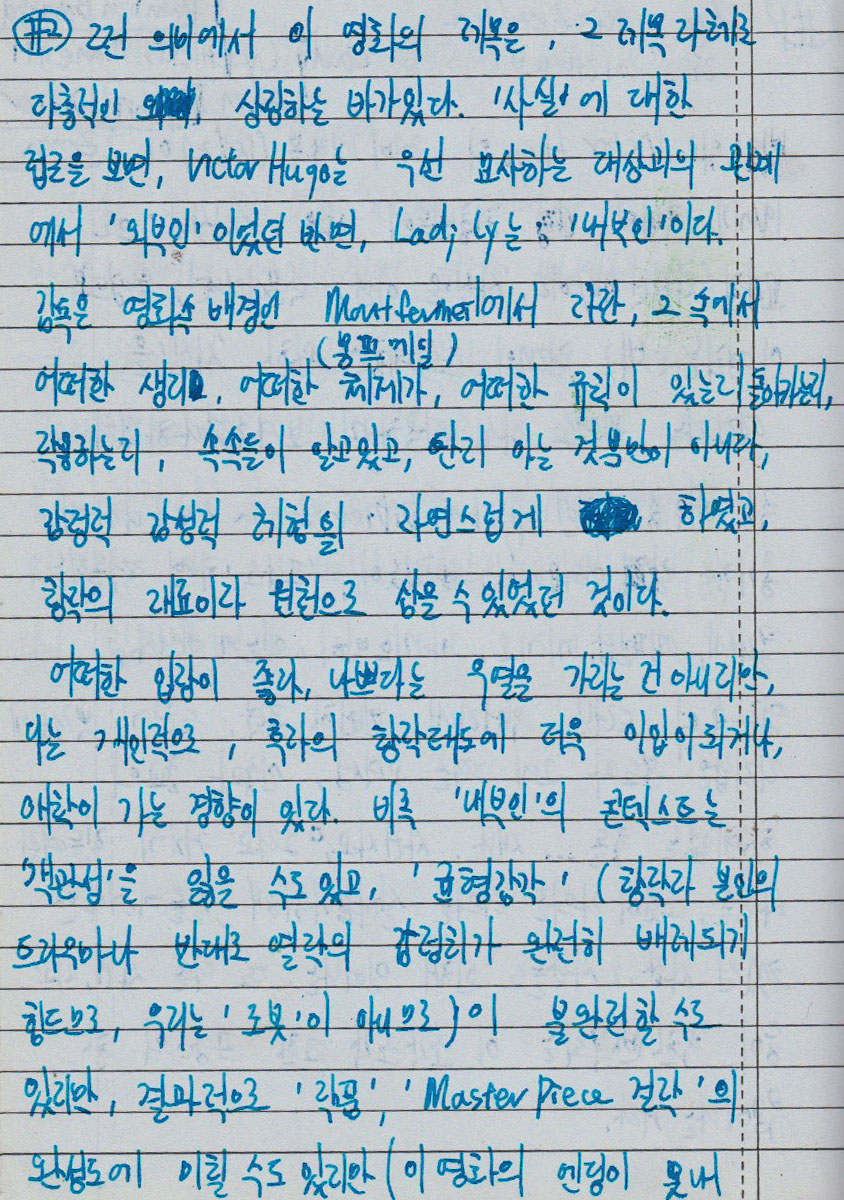 #2 그런 의미에서 이 영화의 제목은, 그 제목 자체로
다층적인 상징하는 바가 있다. '사실'에 대한
접근을 보면, Victor Hugo는 우선 묘사하는 대상과의 관계
에서 '외부인'이었던 반면, Ladj Ly는 '내부인'이다.
감독은 영화속 배경인 Montfermeil에서 자란, 그 속에서
(몽프메일)
어떠한 생리, 어떠한 체제가, 어떠한 규칙이 있는지 돌아가는지,
작용하는지, 속속들이 알고있고, 단지 아는 것뿐만이 아니라,
감정적 감성적 체험을 자연스럽게 하였고,
창작의 재료이자 원천으로 삼을 수 있었던 것이다.
어떠한 입장이 좋다, 나쁘다는 우열을 가리는 건 아니지만,
나는 개인적으로, 후자의 창작태도에 더욱 이입이 되거나,
애착이 가는 경향이 있다. 비록 '내부인'의 콘텍스트는
'객관성'을 잃을 수도 있고, '균형감각' (창작자 본인의
트라우마나 반대로 열락의 감정치가 완전히 배제되기
힘드므로, 우리는 '로봇'이 아니므로)이 불완전할 수도
있지만, 결과적으로 '작품', 'Master piece 걸작'의
완성도에 미칠 수도 있지만 (이 영화의 엔딩이 못내